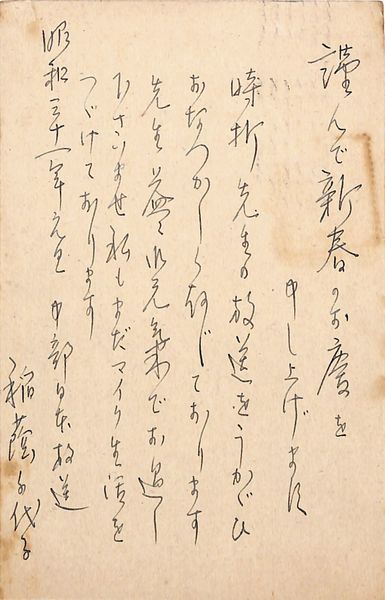 謹んで新春のお慶を
申し上げます
時折先生の放送をうかゞひ
おなつかしく存じております
先生益々御元気でお過し
下さいませ 私もまだマイク生活を
つゞけております
昭和三十一年元旦 中部日本放送
稲蔭千代子